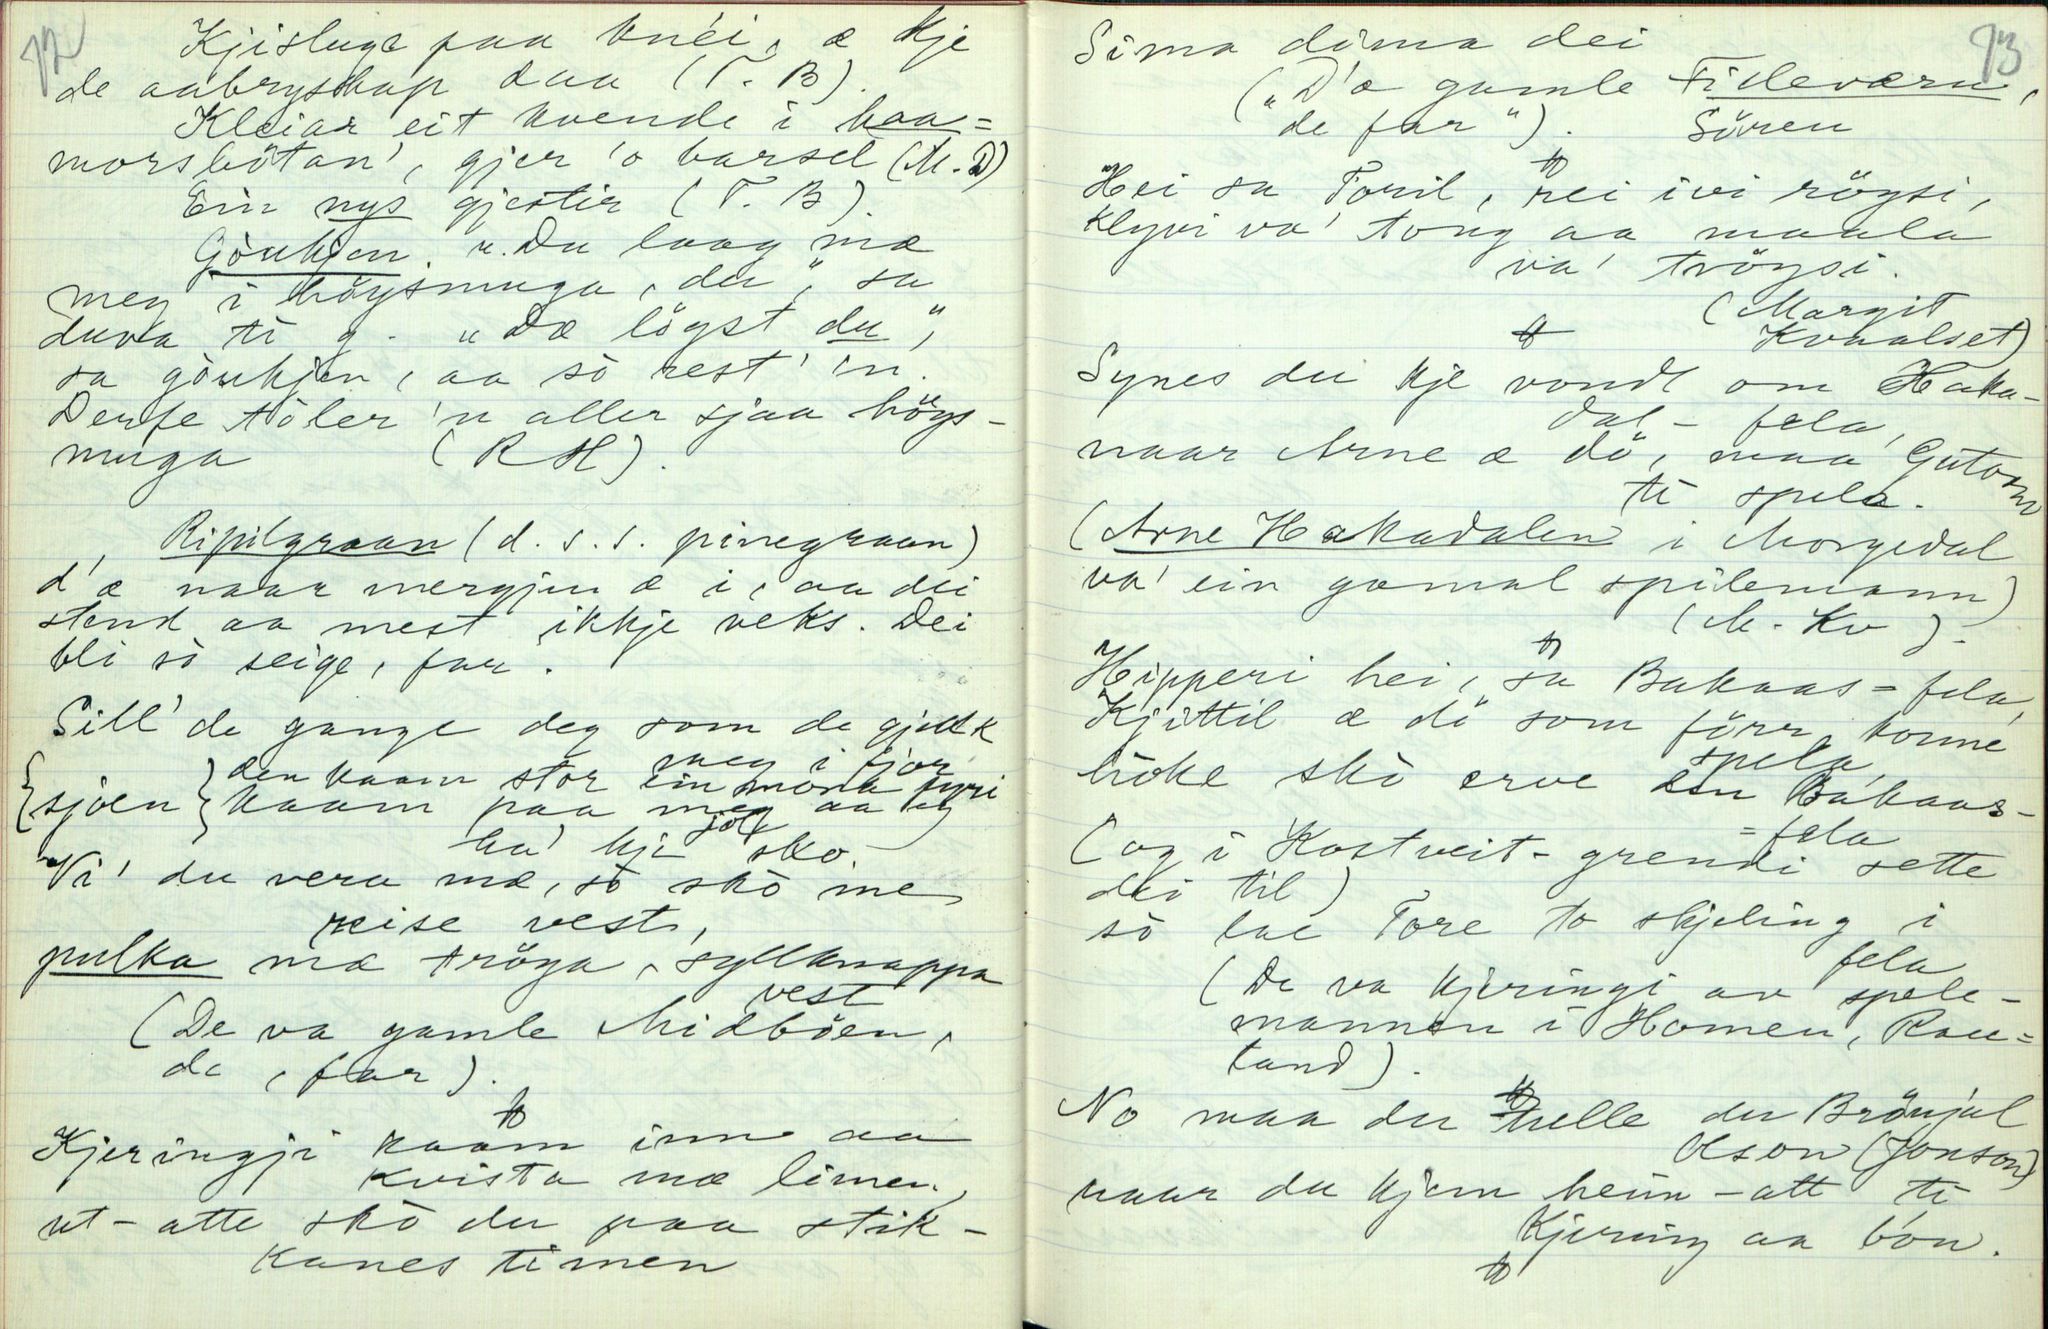 72
Kjisluge paa knéi, æ kje
de aabryskap daa (T. B).
Kleiar eit kvende i haa=
morsbótan', gjer 'o barsel (M. D)
Ein nys gjestir (T. B).
Gòukjen. "Du laag mæ
meg i höysmuga, du", sa
duva ti g. "Dæ lögst du",
sa gòukjen, aa sò rest' 'n.
Derfe tòler 'n aller sjaa höys-
muga (R H).
Ripilgraan (d. s. s. pinegraan)
d'æ naar mergjen æ i, aa dei
stend aa mest ikkje veks. Dei
bli sò seige, far.
Sill' de gange deg som de gjekk
meg i fjor
den kaam stor ein mona fyri
{sjoen} kaam paa meg aa eg
ha' kje jol sko.
Vi' du vera mæ, sò skò me
reise vest,
pulka mæ tröya, syllknappa
vest
(De va gamle Midböen,
de, far).
Kjeringji kaam inn aa
kvista mæ limen,
ut-atte skò du paa stik-
kanes timen
73
Sima dima dei
("D'æ gamle Fidleværn,
de far"). Sören
Hei sa Toril, rei ivi röysi,
klyvi va' tong aa maala
va' tröysi.
(Margit
Kvaalset)
Synes du kje vondt om Haka-
dal-fela,
naar Arne æ dö, maa Gutorm
ti spela.
(Arne Hakadalen i Morgedal
va' ein gamal spilemann)
(M. Kv).
Hipperi hei, sa Bakaas-fela,
Kjittil æ dö som förr konne
spela,
hòke skò erve den Bakaas-
=fela
(og i Kostveit-grendi sette
dei til)
sò lae Tore to skjeling i
fela
(De va kjeringi av spele-
mannen i Homen, Rau=
land).
No maa du helle du Brönjul
Olson (Jonson)
naar du kjem heim-att ti
Kjering aa bón.